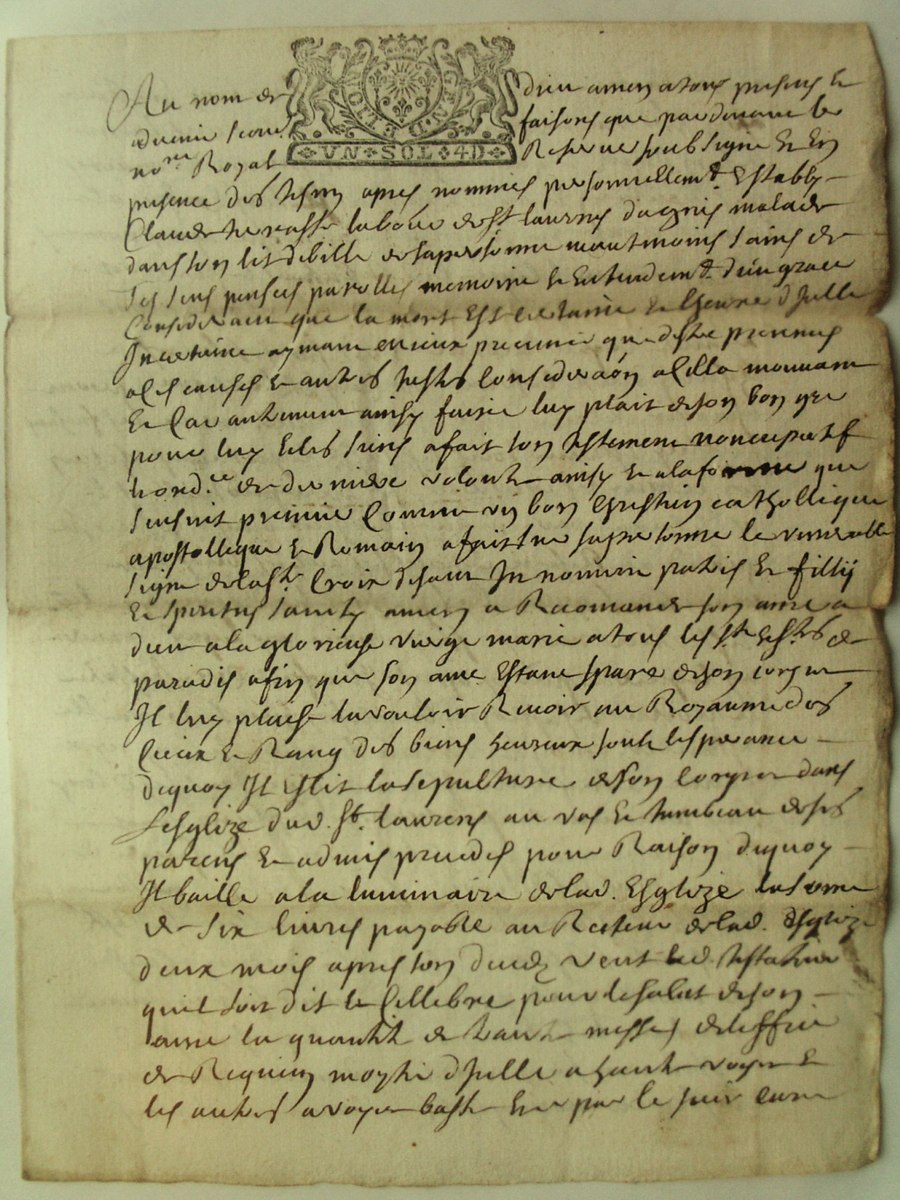 Au nom de dieu amen a tous presens et
advenir scavoir faisons que par devant le
no.re Royal Reserve soubsigne et en
VN SOL 4D
presence des tesm apres nommes personnellem.t estably
Claude terrasse laboür de St laurens d'agnis malade
dans son lit debille de sa personne neantmoings sains de
ses sens pensees parolles memoire et entendem.t dieu grace
Considerant que la mort est certaine et lheure d'Icelle
Incertaine aymant mieux premunir que destre prevenus
a ces causes et autres justes considera͠on a cella mouvant
et car autrement ainsy faire luy plait de son bon gre
pour luy et les siens a fait son testement noncupatif
et derniere volonte ainsy et a la forme que
sensuit premier Comme un bon chrestien catholique
apostollique et Romain a fait sur sa personne le venerable
signe de la s.te Croix disant In nomine patris et fillij
et spiritus sancty amen a Recomande son ame a
dieu a la glorieuse vierge marie a tous les s.ts et s.tes de
paradis afin que son ame estant separe de son corps
Il luy plaise la vouloir Recevoir au Royaume des
Cieux et Rang des biens heureux soubs lesperance
dequoy Il eslit la sepulture de son corps dans
lesglize dud. St. laurens au vas et tumbeau de ses
parens et admis precedes pour Raison dequoy
Il baille a la luminaire de lad. Esglize la some
de six livres payable au Recteur de lad. Esglize
deux mois apres son deces veut led testateur
quil soit dit et Cellebre pour le salut de son
ame la quantite de trante messes de loffice
de Requien moytie d'Icelle a haute voye et
les autres a voye basse et par le sieur cure